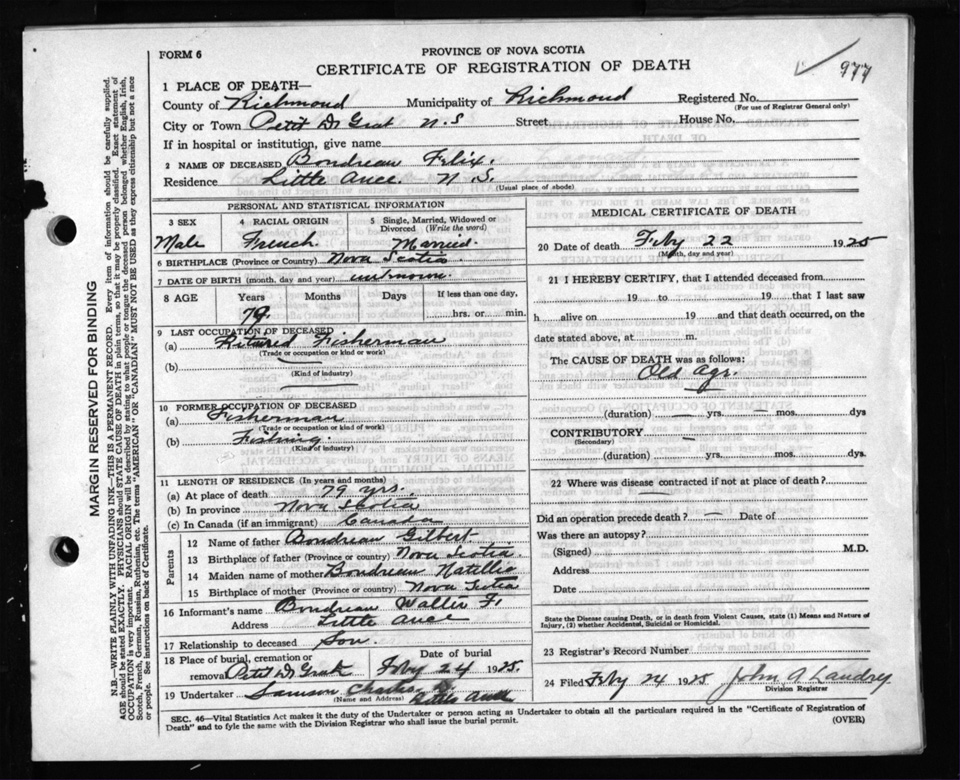 977
FORM 6
PROVINCE OF NOVA SCOTIA
CERTIFICATE OF REGISTRATION OF DEATH
MARGIN RESERVED FOR BINDING
N.B.—WRITE PLAINLY WITH UNFADING INK—THIS IS A PERMANENT RECORD. Every item of information should be carefully supplied.
AGE should be stated EXACTLY. PHYSICIANS should STATE CAUSE OF DEATH in plain terms, so that it may be properly classified. Exact statement of
OCCUPATION is very important. RACIAL ORIGIN will be described by stating to what people or tongue the deceased person belonged whether English, Irish,
Scotch, French, German, Russian, Ruthenian, etc. The terms "AMERICAN OR "CANADIAN" MUST NOT BE USED as they express citizenship but not a race
or people. See instructions on back of Certificate.
1 PLACE OF DEATH—
County of Richmond Municipality of Richmond Registered No.
(For use of Registrar General only)
City or Town Petit De Grat N.S Street House No.
If in hospital or institution, give name
2 NAME OF DECEASED Boudreau Felix.
Residence Little Ance. N.S.
(Usual place of abode)
PERSONAL AND STATISTICAL INFORMATION
3 SEX Male
4 RACIAL ORIGIN French.
5 Single, Married, Widowed or Divorced (Write the word) Married.
6 BIRTHPLACE (Province or Country) Nova Scotia
7 DATE OF BIRTH (month, day and year) unknown.
8 AGE Years Months Days If less than one day,
79 hrs. or min.
9 LAST OCCUPATION OF DECEASED
(a) Retared Fisherman
(Trade or occupation or kind or work)
(b)
(Kind of industry)
10 FORMER OCCUPATION OF DECEASED
(a) Fisherman
(Trade or occupation or kind of work)
(b) Fishing.
(Kind of industry)
11 LENGTH OF RESIDENCE (In years and months)
(a) At place of death 79 yrs.
(b) In province Nova Scotia
(c) In Canada (if an immigrant) Canada
Parents
12 Name of father Boudreau Gilbert
13 Birthplace of father (Province or country) Nova Scotia.
14 Maiden name of mother Boudreau Natillie
15 Birthplace of mother (Province or country) Nova Scotia
16 Informant's name Boudreau Walter F.
Address Little Ance
17 Relationship to deceased Son.
18 Place of burial, cremation or removal Petit De Grat Date of burial Feby 24 1925.
19 Undertaker Samson Charles Little Ance
(Name and Address)
MEDICAL CERTIFICATE OF DEATH
20 Date of death Feby 22 1925
(Month, day and year)
21 I HEREBY CERTIFY, that I attended deceased from
19 to 19 that I last saw
h alive on 19 and that death occurred, on the
date stated above, at m.
The CAUSE OF DEATH was as follows:
Old Age.
(duration) — yrs. — mos. dys
CONTRIBUTORY —
(Secondary)
(duration) yrs. mos. dys.
22 Where was disease contracted if not at place of death?
—
Did an operation precede death? — Date of
Was there an autopsy?
(Signed) M.D.
Address
Date
State the Disease causing Death, or in death from Violent Causes, state (1) Means and Nature of
Injury, (2) whether Accidental, Suicidal or Homicidal.
23 Registrar's Record Number
24 Filed Feby 24 1925 John A Landry
Division Registrar
SEC. 46—Vital Statistics Act makes it the duty of the Undertaker or person acting as Undertaker to obtain all the particulars required in the "Certificate of Registration of
Death" and to fyle the same with the Division Registrar who shall issue the burial permit.
(OVER)